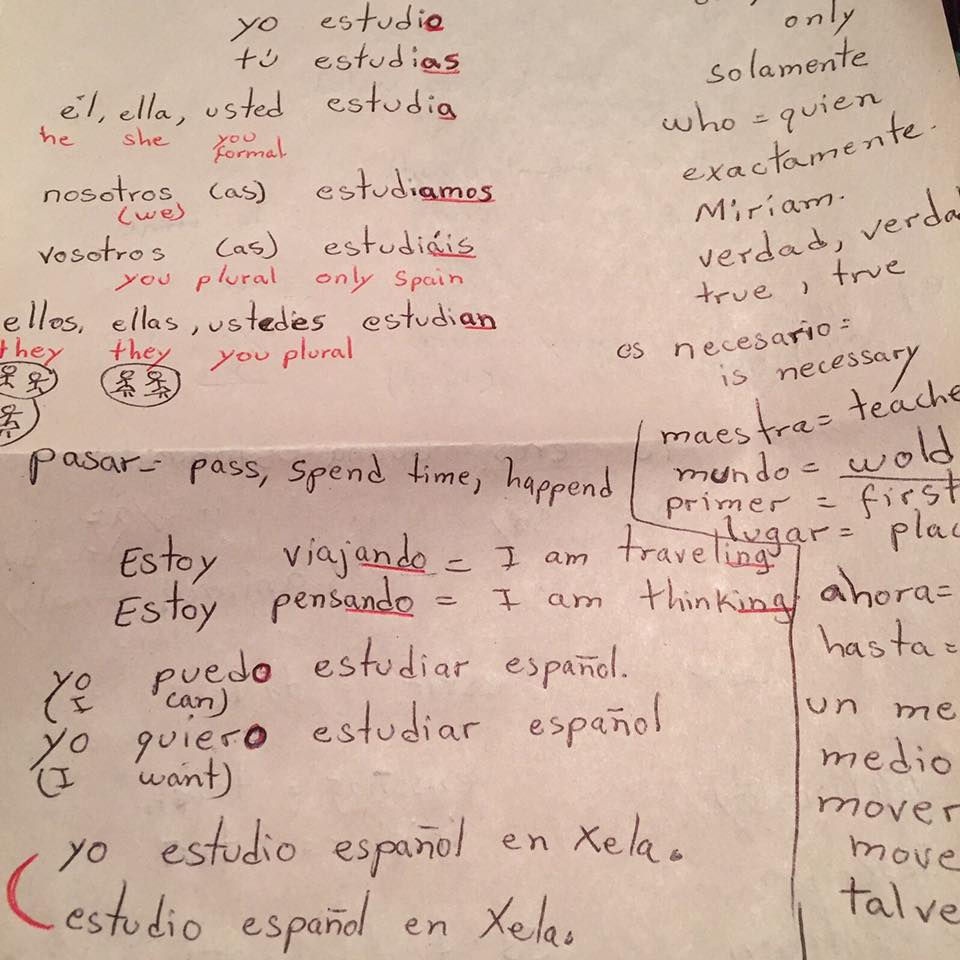 yo estudio
tú estudias
él, ella, usted estudia
he she you
formal
nosotros (as) estudiamos
(we)
vosotros (as) estudiáis
you plural only Spain
ellos, ellas, ustedes estudian
they they you plural
pasar= pass, spend time, happend
Estoy viajando = I am traveling
Estoy pensando = I am thinking
yo puedo estudiar español.
(I can)
yo quiero estudiar español
(I want)
yo estudio español en Xela.
estudio español en Xela.
only
solamente
who = quien
exactamente.
Miriam.
verdad, verda
true, true
es necesario =
is necessary
maestra = teache
mundo = wold
primer = first
lugar = plac
ahora =
hasta =
un me
medio
mover
move
talve